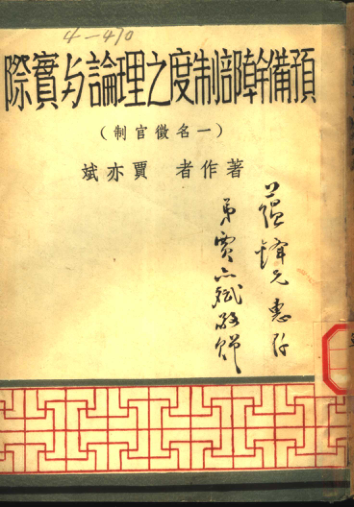 4-410
預備幹部制度之理論与實際
(一名徵官制)
著作者 賈亦斌
兄惠存
弟賈亦斌敬贈